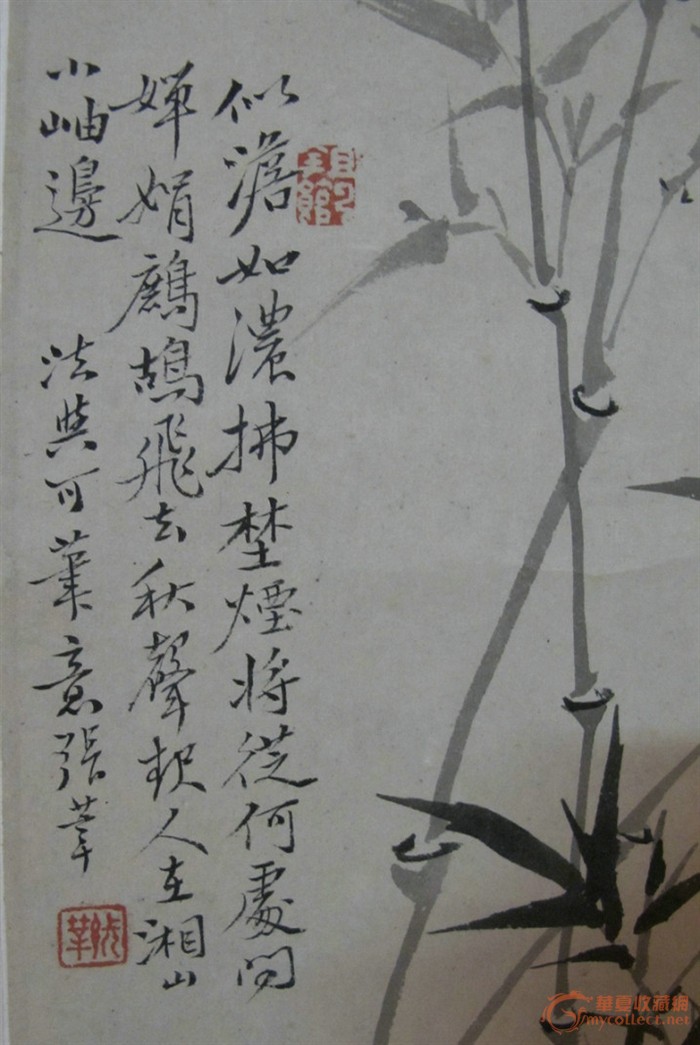 似澹如濃拂埜煙將從何處問
嬋娟鷓鴣飛去秋聲起人在湘山
小岫邊
法與可筆意張莘
張莘
華夏收藏網
mycollect.net